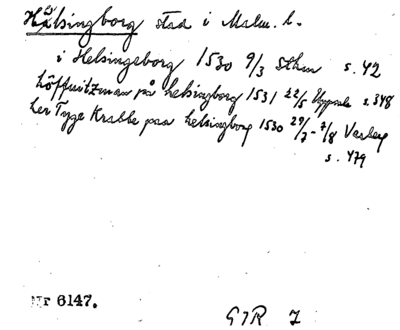 Hälsingborg stad i Malm. l.
i Helsingeborg 1530 9/3 Sthm s. 42
höffuitzman på helsingborg 1531 22/5 Uppsala s. 348
her Tyge Krabbe paa helsingborg 1530 29/7-7/8 Varberg
s. 479
Nr 6147.
GIR 7